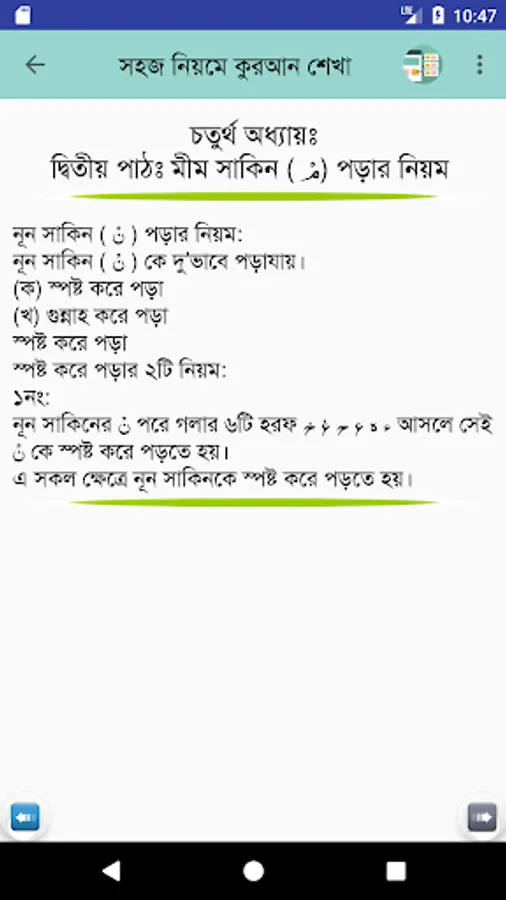 LTE 10:47
সহজ নিয়মে কুরআন শেখা
চতুর্থ অধ্যায়ঃ
দ্বিতীয় পাঠঃ মীম সাকিন ( مْ ) পড়ার নিয়ম
নূন সাকিন ( نْ ) পড়ার নিয়ম:
নূন সাকিন ( نْ ) কে দু'ভাবে পড়াযায়।
(ক) স্পষ্ট করে পড়া
(খ) গুন্নাহ করে পড়া
স্পষ্ট করে পড়া
স্পষ্ট করে পড়ার ২টি নিয়ম:
১নং:
নূন সাকিনের نْ পরে গলার ৬টি হরফ আসলে সেই
نْ কে স্পষ্ট করে পড়তে হয়।
এ সকল ক্ষেত্রে নূন সাকিনকে স্পষ্ট করে পড়তে হয়।